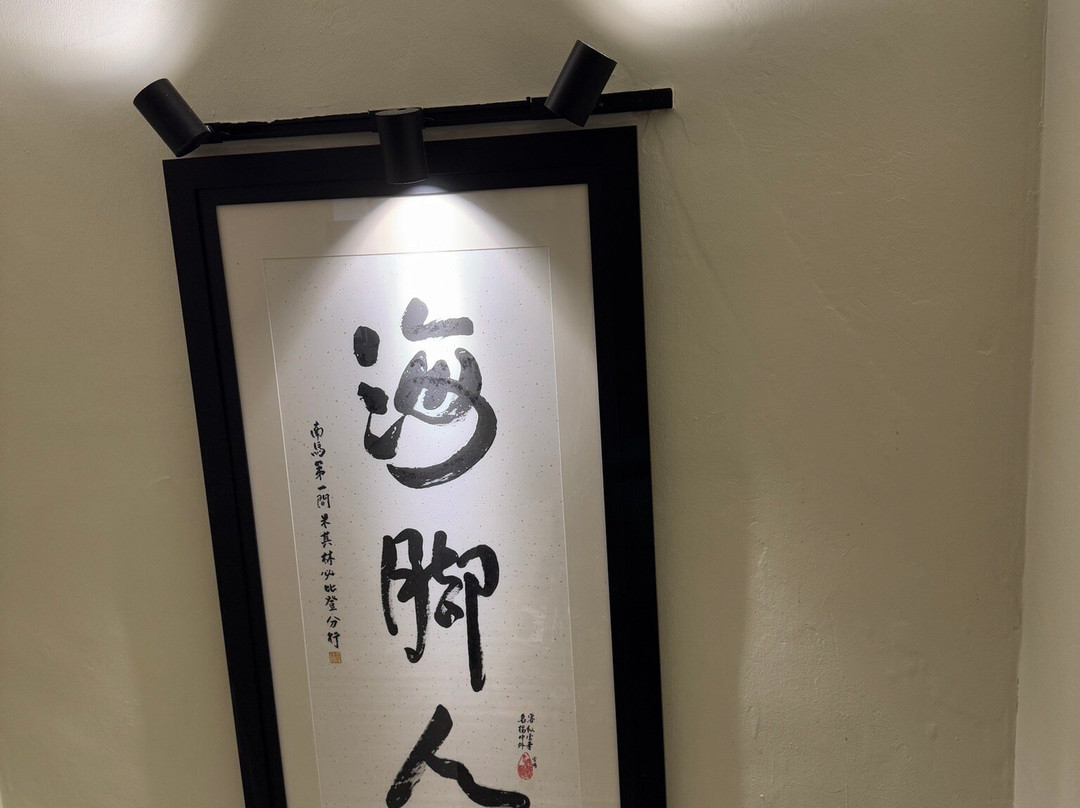 海脚人
南馬第一間米其林必比登分行